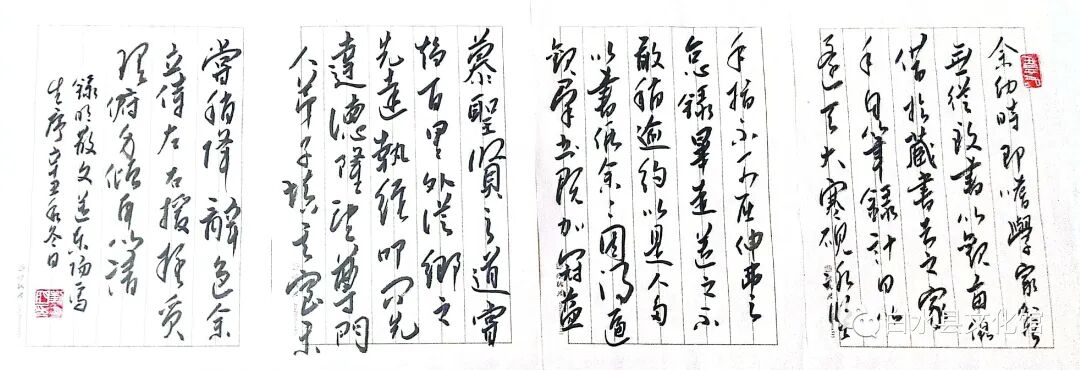 余幼時即嗜學家貧
無從致書以觀每假
借於藏書者之家
手自筆錄計日以
還天大寒硯冰堅
手指不可屈伸弗之
怠錄畢走送之不
敢稍逾約以是人多
以書假余々因得遍
觀群書既加冠益
慕聖賢之道嘗
趨百里外從鄉之
先達執經叩問先
達德隆望尊門
人弟子填其室未
嘗稍降辭色余
立侍左右援疑質
理俯身傾耳以請
錄明散文送東陽馬
生序辛丑年冬日
白水县文化馆